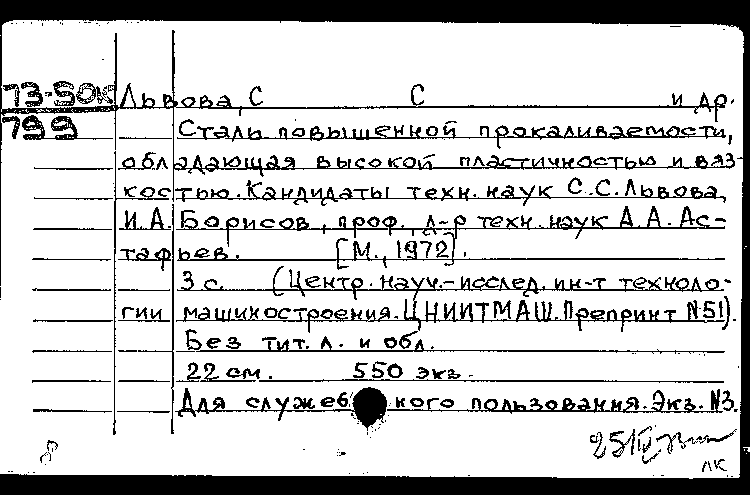 73-50К Львова, С С и др.
799 Сталь повышенной прокаливаемости,
обладающая высокой пластичностью и вяз-
костью. Кандидаты техн. наук С.С. Львова,
И.А. Борисов, проф., д-р техн. наук А.А. Ас-
тафьев. [М., 1972].
3 с. (Центр. науч.-исслед. ин-т техноло-
гии машиностроения. ЦНИИТМАШ. Препринт №51).
Без тит. л. и обл.
22 см. 550 экз.
Для служеб кого пользования. Экз. №3.
8 25/IV
ЛК